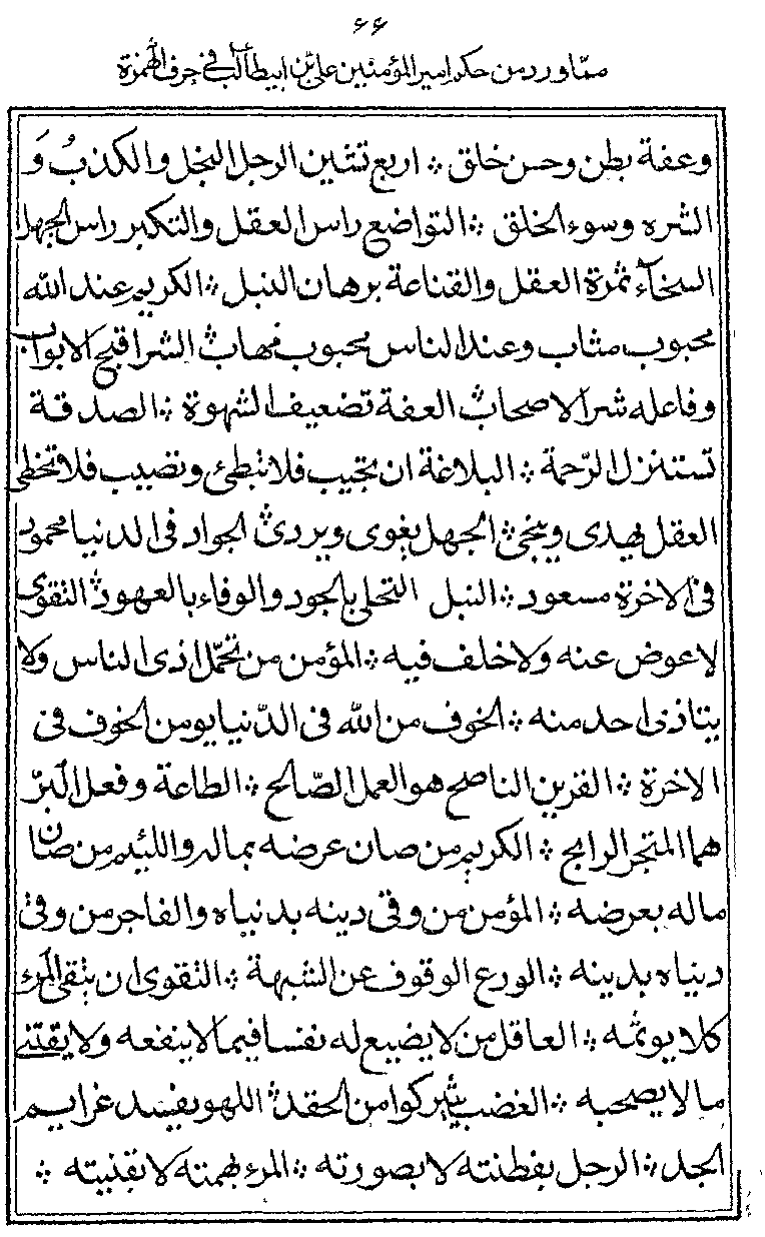 ۶۶
ممّا ورد من حكم امير المؤمنين علي بن ابيطالب في حرف الهمزة
وعفة بطن وحسن خلق ؞ اربع تشين الرجل البخل والكذب وَ
الشره وسوء الخلق ؞ التواضع راس العقل والتكبر راس الجهل
السخآء ثمرة العقل والقناعة برهان النبل ؞ الكريم عند الله
محبوب مثاب وعند الناس محبوب مهاب ؞ الشر اقبح الابواب
وفاعله شر الاصحاب ؞ العفة تضعيف الشهوة ؞ الصدقة
تستنزل الرّحمة ؞ البلاغة ان تجيب فلا تبطئ وتصيب فلا تخطى
العقل يهدى وينجى ؞ الجهل يغوى ويردى ؞ الجواد فى الدنيا محمود
فى الاخرة مسعود ؞ النبل التحلى بالجود والوفاء بالعهود ؞ التقوى
لا عوض عنه ولا خلف فيه ؞ المؤمن من تحمّل اذى الناس ولا
يتاذى احد منه ؞ الخوف من الله فى الدّنيا يومن الخوف فى
الاخرة ؞ القرين الناصح هو العمل الصّالح ؞ الطاعة وفعل البرّ
هما المتجر الرابح ؞ الكريم من صان عرضه بماله واللئيم من صان
ماله بعرضه ؞ المؤمن من وقى دينه بدنياه والفاجر من وقى
دنياه بدينه ؞ الورع الوقوف عن الشبهة ؞ التقوى ان يتقى المرء
كلا يوثمه ؞ العاقل من لا يضيع له نفسا فيما لا ينفعه ولا يقتنى
ما لا يصحبه ؞ الغضب يثير كوامن الحقد ؞ اللهو يفسد عزايم
الجد ؞ الرجل بفطنته لا بصورته ؞ المرء بهمته لا بقنيته ؞